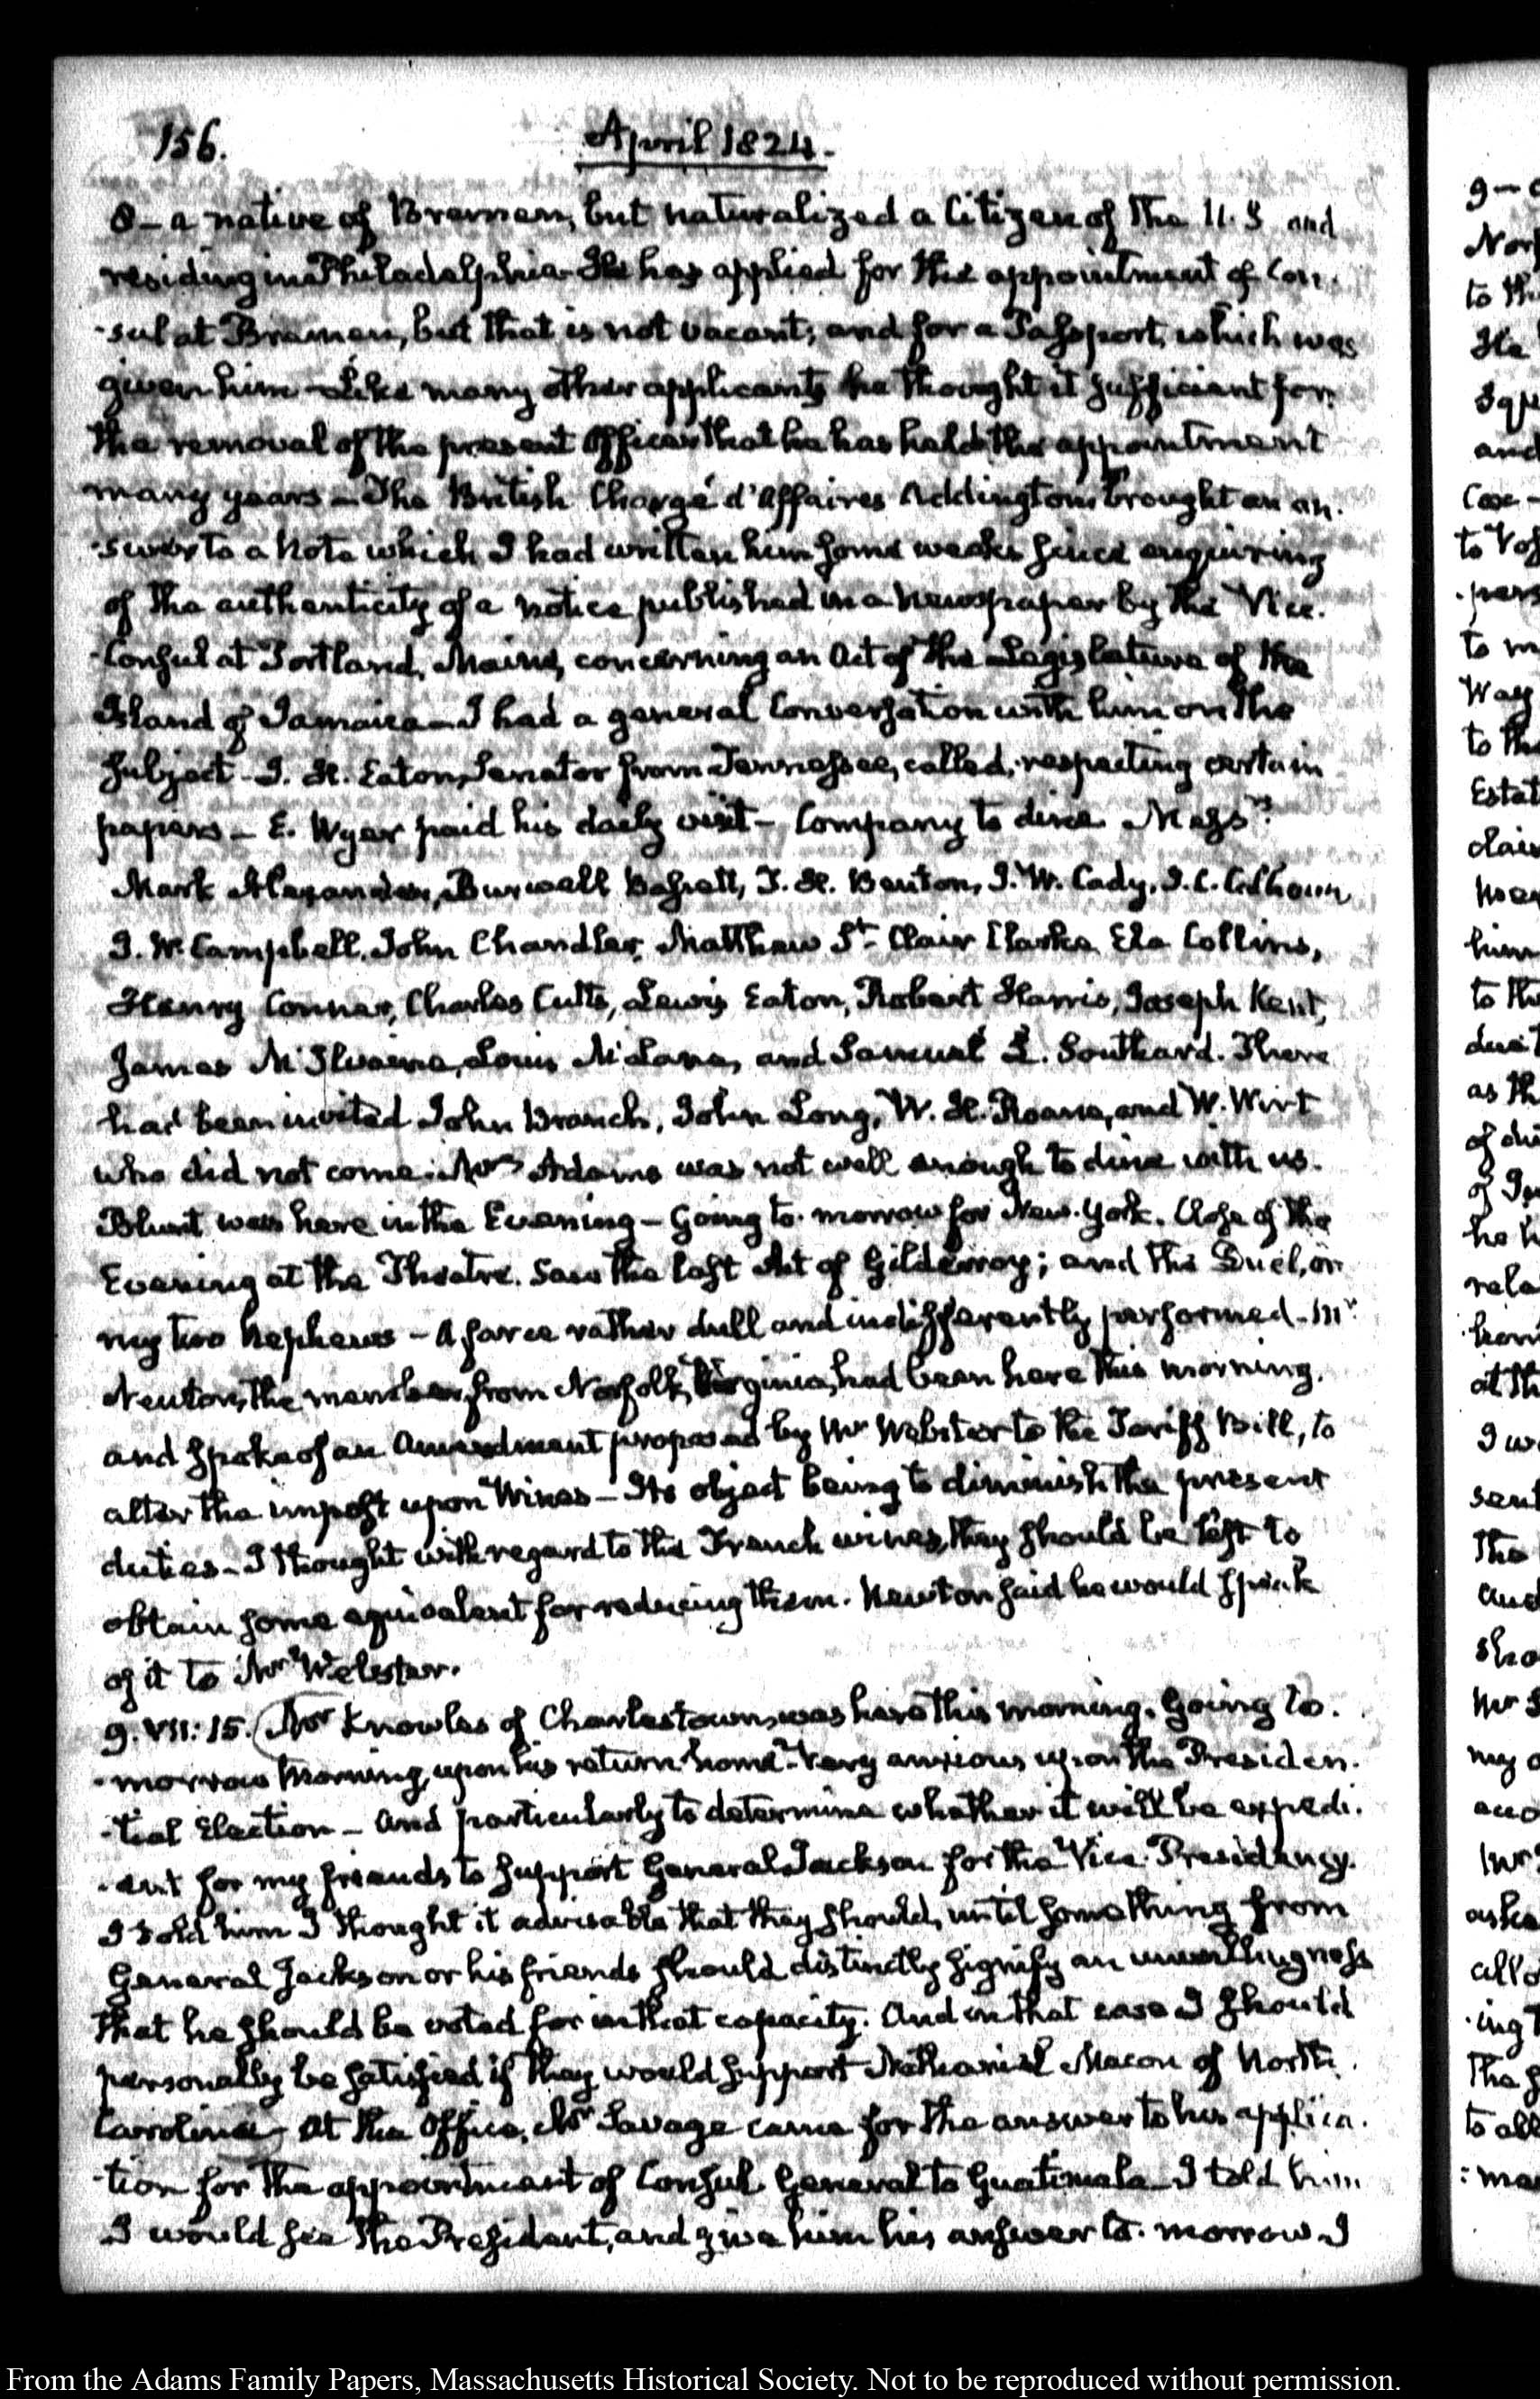 156.
April 1824.
8 – a native of Bremen, but naturalized a Citizen of the U.S and
residing in Philadelphia. He has applied for the appointment of Con-
-sul at Bremen, but that is not vacant; and for a Passport, which was
given him – Like many other applicants he thought it sufficient for
the removal of the present Officer that he has held the appointment
many years – The British Chargé d'Affaires Addington, brought an an-
-swer to a Note which I had written him some weeks since enquiring
of the authenticity of a notice published in a Newspaper by the Vice-
-Consul at Portland, Maine, concerning an Act of the Legislature of the
Island of Jamaica – I had a general Conversation with him on the
subject – J. H. Eaton, Senator from Tennessee, called, respecting certain
papers – E. Wyer paid his daily visit – Company to dine Mess.rs
Mark Alexander, Burwell Bassett, T. H. Benton, J. W. Cady, J. C. Calhoun,
J. W. Campbell, John Chandler, Matthew St. Clair Clarke, Ela Collins,
Henry Conner, Charles Cutts, Lewis Eaton, Robert Harris, Joseph Kent,
James McIlvaine, Louis McLane, and Samuel L. Southard. There
had been invited John Branch, John Long, W. H. Roane, and W. Wirt
who did not come. Mrs Adams was not well enough to dine with us.
Blunt was here in the Evening – Going to-morrow for New-York. Close of the
Evening at the Theatre. Saw the last Act of Gilderoy; and the Duel, or
my two Nephews – A farce rather dull and indifferently performed – Mr
Newton, the member from Norfolk, Virginia, had been here this morning,
and spoke of an Amendment proposed by Mr Webster to the Tariff Bill, to
alter the impost upon Wines – Its object being to diminish the present
duties – I thought with regard to the French wines, they should be left to
obtain some equivalent for reducing them. Newton said he would speak
of it to Mr Webster.
9. VII: 15. Mr Knowles of Charlestown, was here this morning. Going to-
-morrow morning, upon his return home – Very anxious upon the Presiden-
-tial Election – And particularly to determine whether it will be expedi-
-ent for my friends to support General Jackson for the Vice-Presidency.
I told him I thought it advisable that they should, until something from
General Jackson or his friends should distinctly signify an unwillingness
that he should be voted for in that capacity. And in that case I should
personally be satisfied if they would support Nathaniel Macon of North-
Carolina – At the Office, Mr Savage came for the answer to his applica-
-tion for the appointment of Consul General to Guatimala – I told him
I would see the President, and give him his answer to-morrow – I
From the Adams Family Papers, Massachusetts Historical Society. Not to be reproduced without permission.